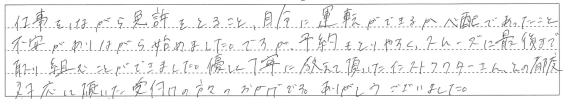 仕事をしながら免許をとること、自分に運転ができるか心配であったこと
不安がありながら始めました。ですが、予約もとりやすく、スムーズに最後まで
取り組むことができました。優しく丁寧に教えて頂いたインストラクターさん、その都度
対応して頂いた受付の方々のおかげです。ありがとうございました。